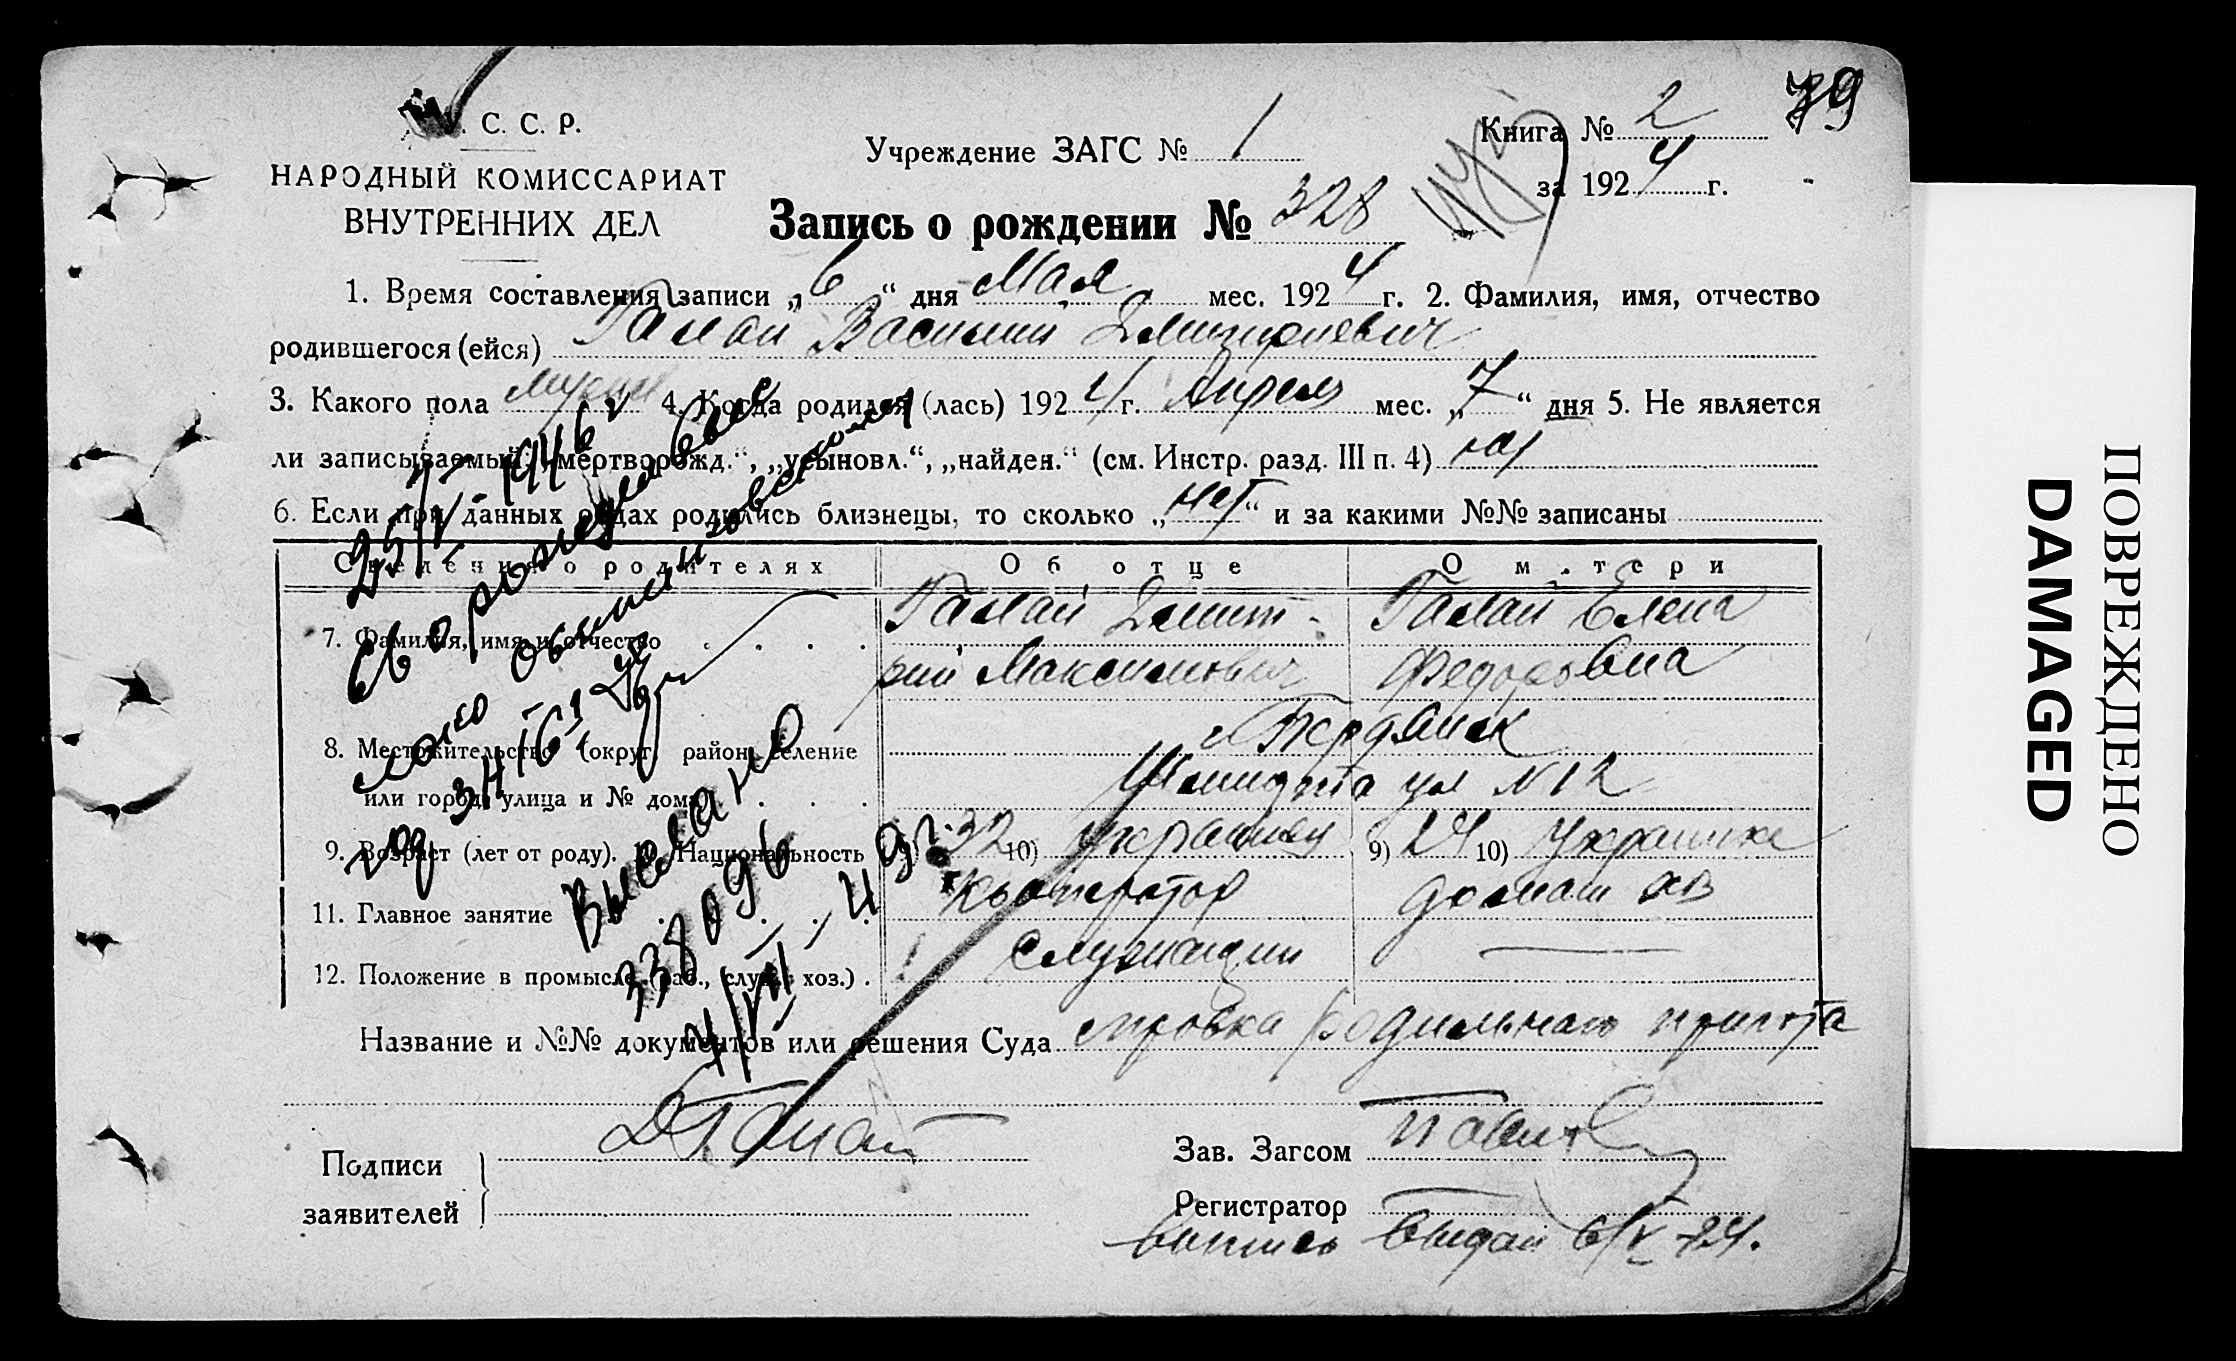 С. С. Р.
НАРОДНЫЙ КОМИССАРИАТ
ВНУТРЕННИХ ДЕЛ
Учреждение ЗАГС № 1
Книга № 2
79
за 1924 г.
Запись о рождении № 328
1. Время составления записи „6“ дня Мая мес. 1924 г. 2. Фамилия, имя, отчество
родившегося (ейся) Галай Василий Дмитриевич
3. Какого пола мужск 4. Когда родился (лась) 1924 г. Апреля мес. „7“ дня 5. Не является
ли записываемый „мертворожд.“, „усыновл.“, „найден.“ (см. Инстр. разд. III п. 4) нет
6. Если при данных родах родились близнецы, то сколько „нет“ и за какими №№ записаны
Сведения о родителях Об отце О матери
7. Фамилия, имя и отчество Галай Дмит- Галай Елена
рий Максимович Федоровна
8. Местожительство (округ, район, селение г. Бердянск
или город, улица и № дома Шмидта ул № 12
9. Возраст (лет от роду). 10. Национальность 9) 32 10) украинец 9) 24 10) Украинка
11. Главное занятие Кооператор домаш хоз
12. Положение в промысле (раб., служ., хоз.) служащий —
Название и №№ документов или решения Суда справка родильного приюта
Подписи
заявителей
Д Галай
Зав. Загсом
Регистратор
выпись выдан 6/V-24.
25/V-1946 г
св о рождении
Выслано
338096
4/VII
ПОВРЕЖДЕНО
DAMAGED